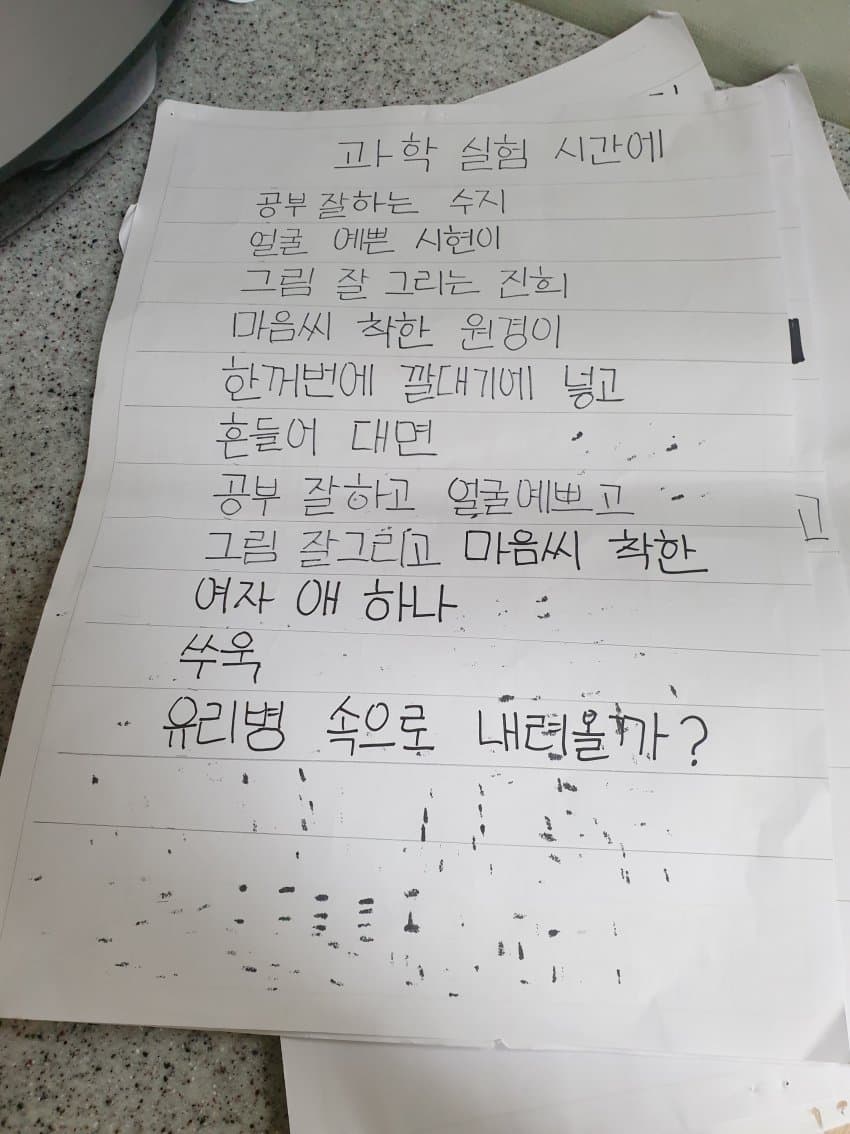 과학 실험 시간에
공부 잘하는 수지
얼굴 예쁜 시현이
그림 잘 그리는 진희
마음씨 착한 원경이
한꺼번에 깔대기에 넣고
흔들어 대면
공부 잘하고 얼굴예쁘고
그림 잘그리고 마음씨 착한
여자 애 하나
쑤욱
유리병 속으로 내려올까?
고